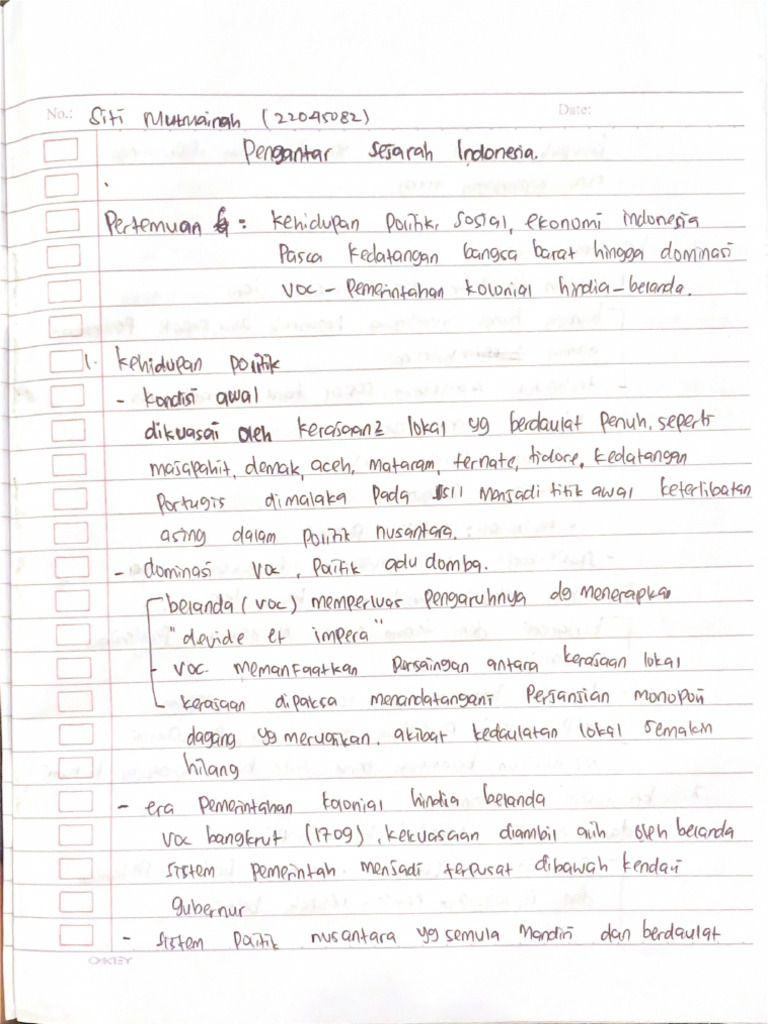 No.: Siti Mutmainah (22045082) Date:
Pengantar Sejarah Indonesia.
Pertemuan : Kehidupan Politik, Sosial, ekonomi indonesia
Pasca Kedatangan bangsa barat hingga dominasi
VOC - Pemerintahan Kolonial hindia-belanda.
1. Kehidupan politik
- Kondisi awal
dikuasai oleh kerajaan2 lokal yg berdaulat penuh, seperti
majapahit, demak, aceh, mataram, ternate, tidore, kedatangan
Portugis dimalaka pada 1511 menjadi titik awal keterlibatan
asing dalam politik nusantara.
- dominasi VOC, Politik adu domba.
belanda (VOC) memperluas pengaruhnya dg menerapkan
"devide et impera"
- VOC. memanfaatkan Persaingan antara kerajaan lokal
kerajaan dipaksa menandatangani Perjanjian monopoli
dagang yg merugikan. akibat kedaulatan lokal semakin
hilang
- era Pemerintahan kolonial hindia belanda
VOC bangkrut (1709), kekuasaan diambil alih oleh belanda
sistem pemerintah menjadi terpusat dibawah kendali
gubernur
- sistem Politik nusantara yg semula Mandiri dan berdaulat